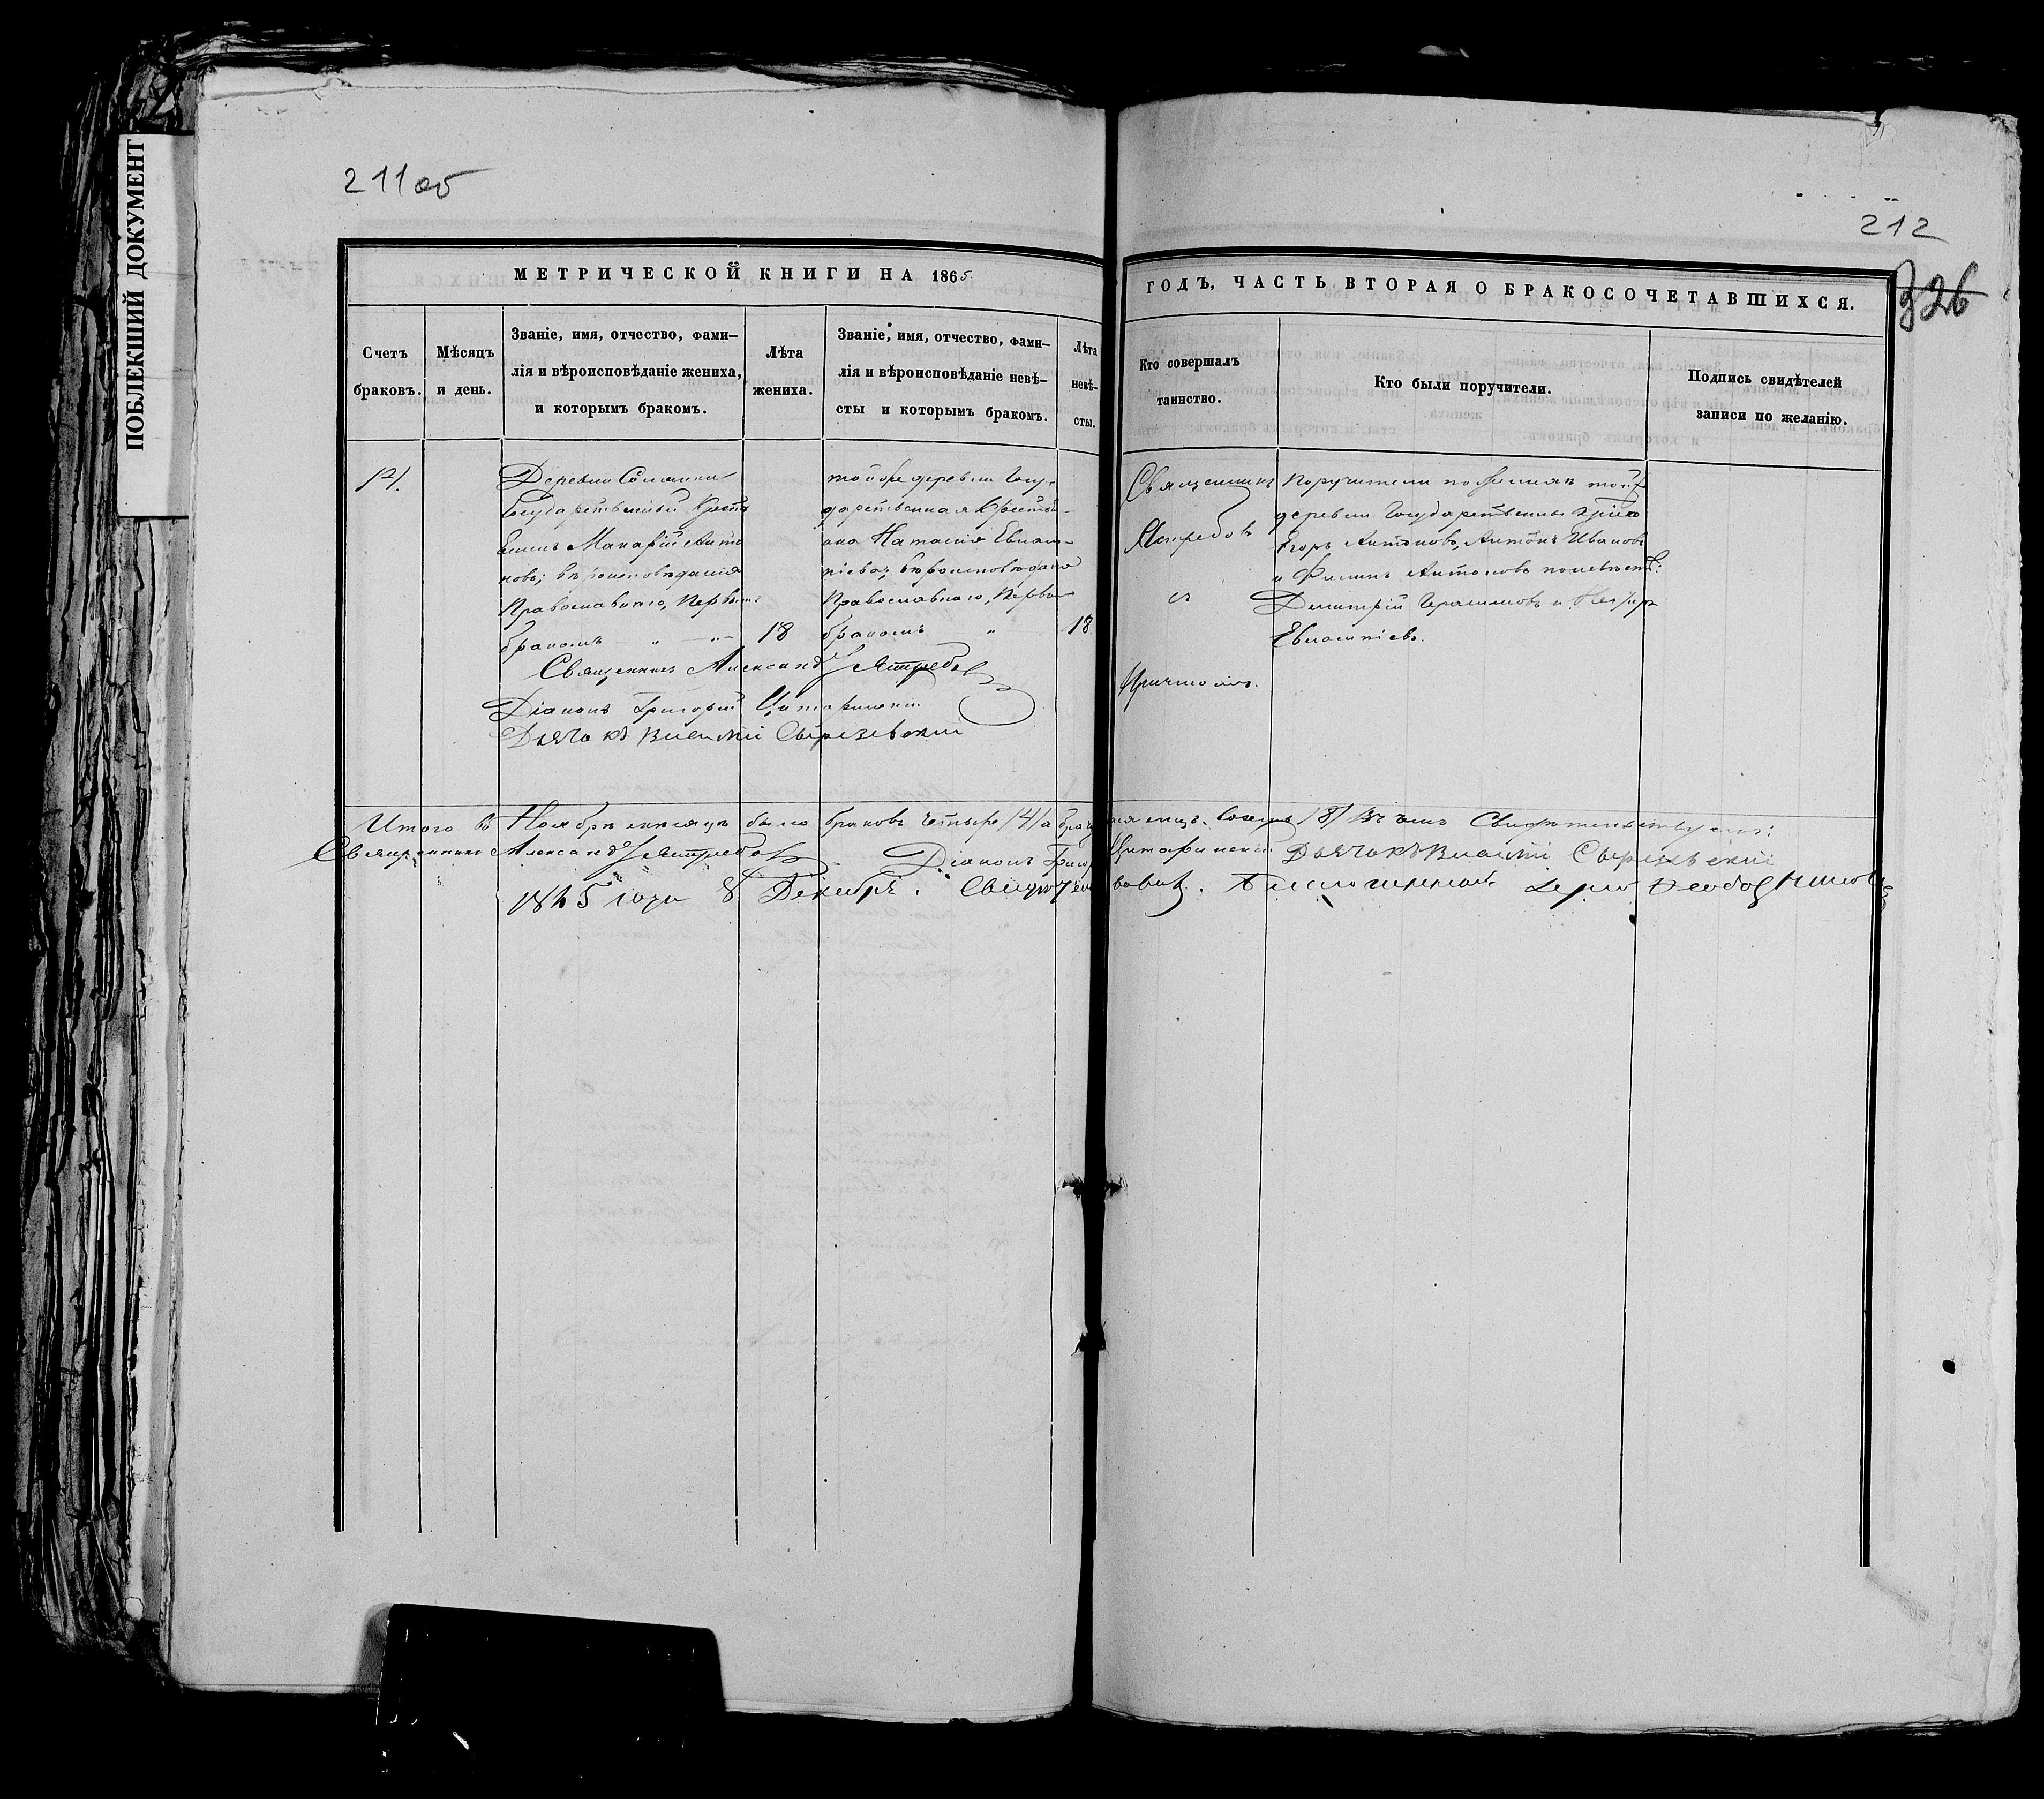 ПОБЛЕКШИЙ ДОКУМЕНТ
211об
212
326
МЕТРИЧЕСКОЙ КНИГИ НА 1865
ГОДЪ, ЧАСТЬ ВТОРАЯ О БРАКОСОЧЕТАВШИХСЯ.
Счетъ браковъ.
Мѣсяцъ и день.
Званіе, имя, отчество, фами-
лія и вѣроисповѣданіе жениха,
и которымъ бракомъ.
Лѣта
жениха.
Званіе, имя, отчество, фами-
лія и вѣроисповѣданіе невѣ-
сты и которымъ бракомъ.
Лѣта
невѣ-
сты.
Кто совершалъ
таинство.
Кто были поручители.
Подпись свидѣтелей
записи по желанію.
12.
Деревни
Государственный Крестья
Макарій Анто
новъ, вѣроисповѣданія
Православнаго, Первымъ
бракомъ " — "
18
той же деревни Госу-
дарственная Крестья-
нка Евлам-
піева, вѣроисповѣданія
Православнаго, Первым
бракомъ "
18
Священникъ
Ястребовъ
съ
Причтомъ.
Поручители по женихѣ той
деревни Государственные
Егоръ Антоновъ, Антонъ Ивановъ
и Филипъ Антоновъ по невѣстѣ:
Димитрій Герасимовъ и
Евлампіевъ.
Священникъ Александръ Ястребовъ
Діаконъ Григорій
Дьячокъ Василій
Итого въ Ноябрѣ мѣсяцѣ было браковъ четыре /4/ а лицъ восемь /8/ Въ чемъ Свидѣтельствуемъ:
Священникъ Александръ Ястребовъ Діаконъ Григорій Дьячокъ Василій
1865 года 8 Декабря. Свидѣтельствовалъ. Благочинный